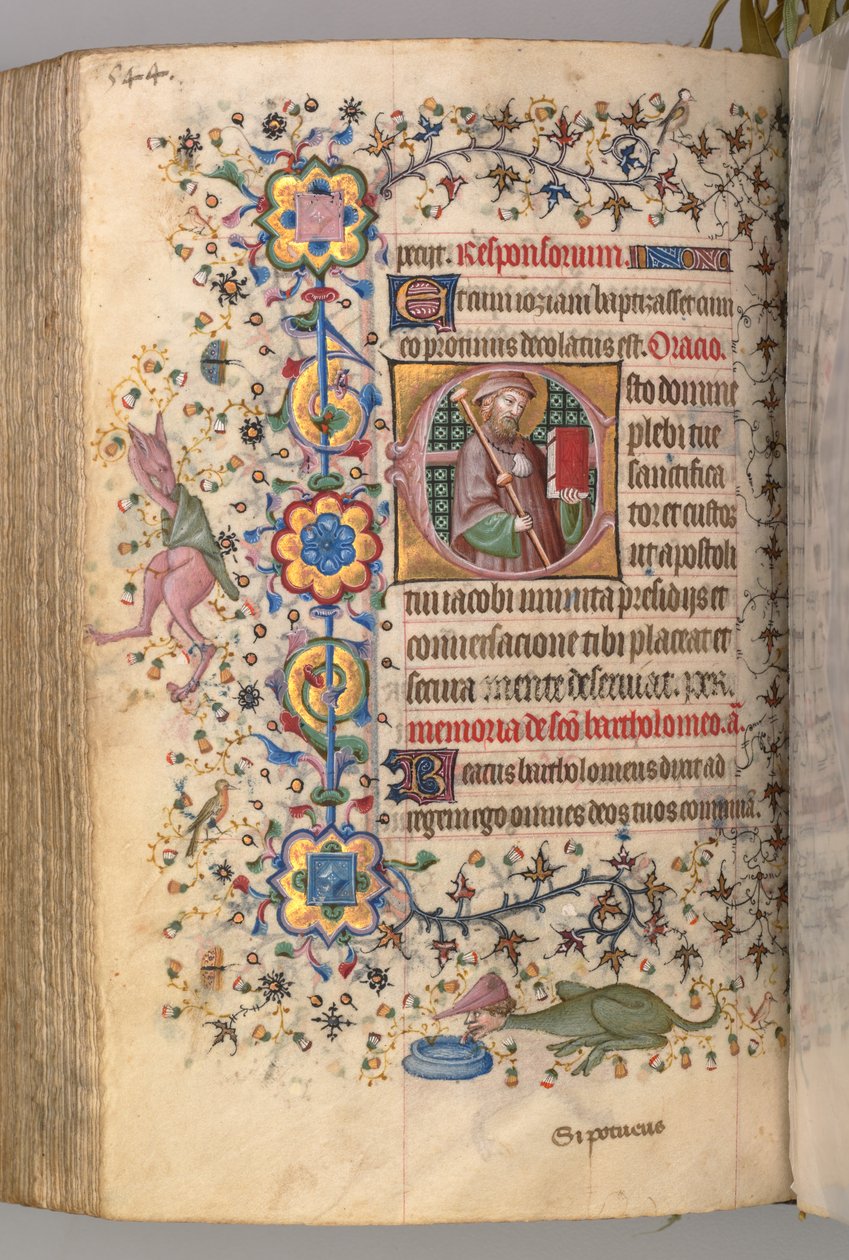 544.
petijt. Responsorium.
Et cum ioziam baptizasset cum
eo protinus decolatus est. Oracio.
Esto domine
plebi tue
sanctifica
tor et custos
ut apostoli
tui iacobi munita presidijs et
conversacione tibi placeat et
secura mente deserviat. per.
memoria de sco bartholomeo. a
Beatus bartholomeus dixit ad
regem ego omnes deos tuos comminu
Si potueris